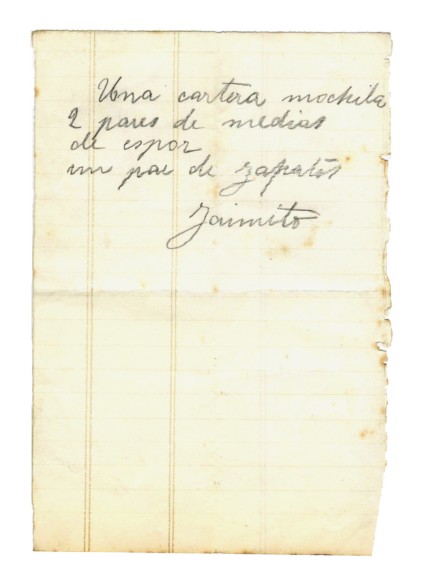 Una cartera mochila
2 pares de medias
de espor
un par de zapatos
Jaimito